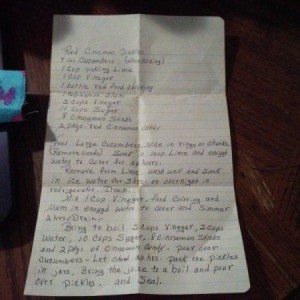 Red Cinnamon Pickles
Cucumbers
1 cup pickling Lime
1 Cup Vinegar
1 Bottle Red Food Coloring
1 tablespoon Alum
3 Cups Vinegar
10 Cups Sugar
8 Cinnamon Sticks
2 pkgs. red Cinnamon Candy
Peel Large Cucumbers, slice in rings or chunks.
(Remove seeds) Soak 1 cup Lime and enough
water to cover for
Remove from Lime, wash well and soak
in ice water for 3hrs or overnight in
refrigerator. Drain.
Mix 1 Cup Vinegar, Food Coloring and
Alum in enough water to cover and Simmer
2 hrs. Drain.
Bring to boil 3 Cups Vinegar, 3 cups
Water, 10 cups Sugar, 8 Cinnamon Sticks
and 2 pkgs of Cinnamon Candy. pour over
Cucumbers - Let stand hrs. pack the pickles
in jars, Bring the juice to a boil and pour
over pickles, and Seal.